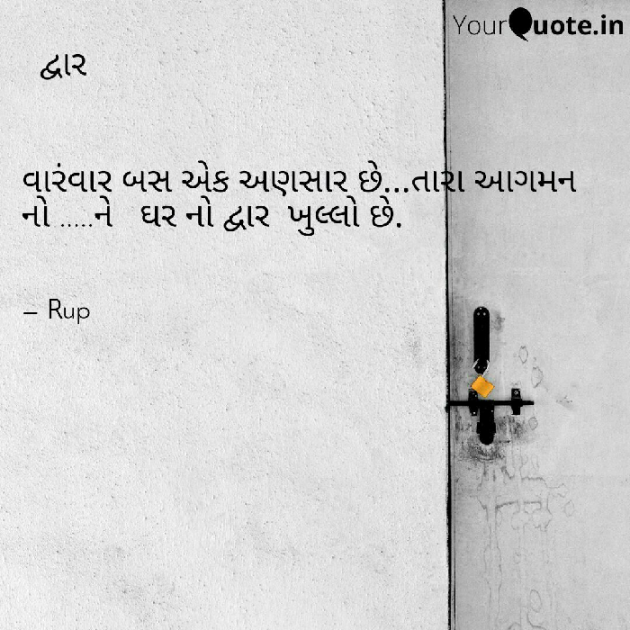 YourQuote.in
દ્વાર
વારંવાર બસ એક અણસાર છે...તારા આગમન
નો .....ને ઘર નો દ્વાર ખુલ્લો છે.
– Rup